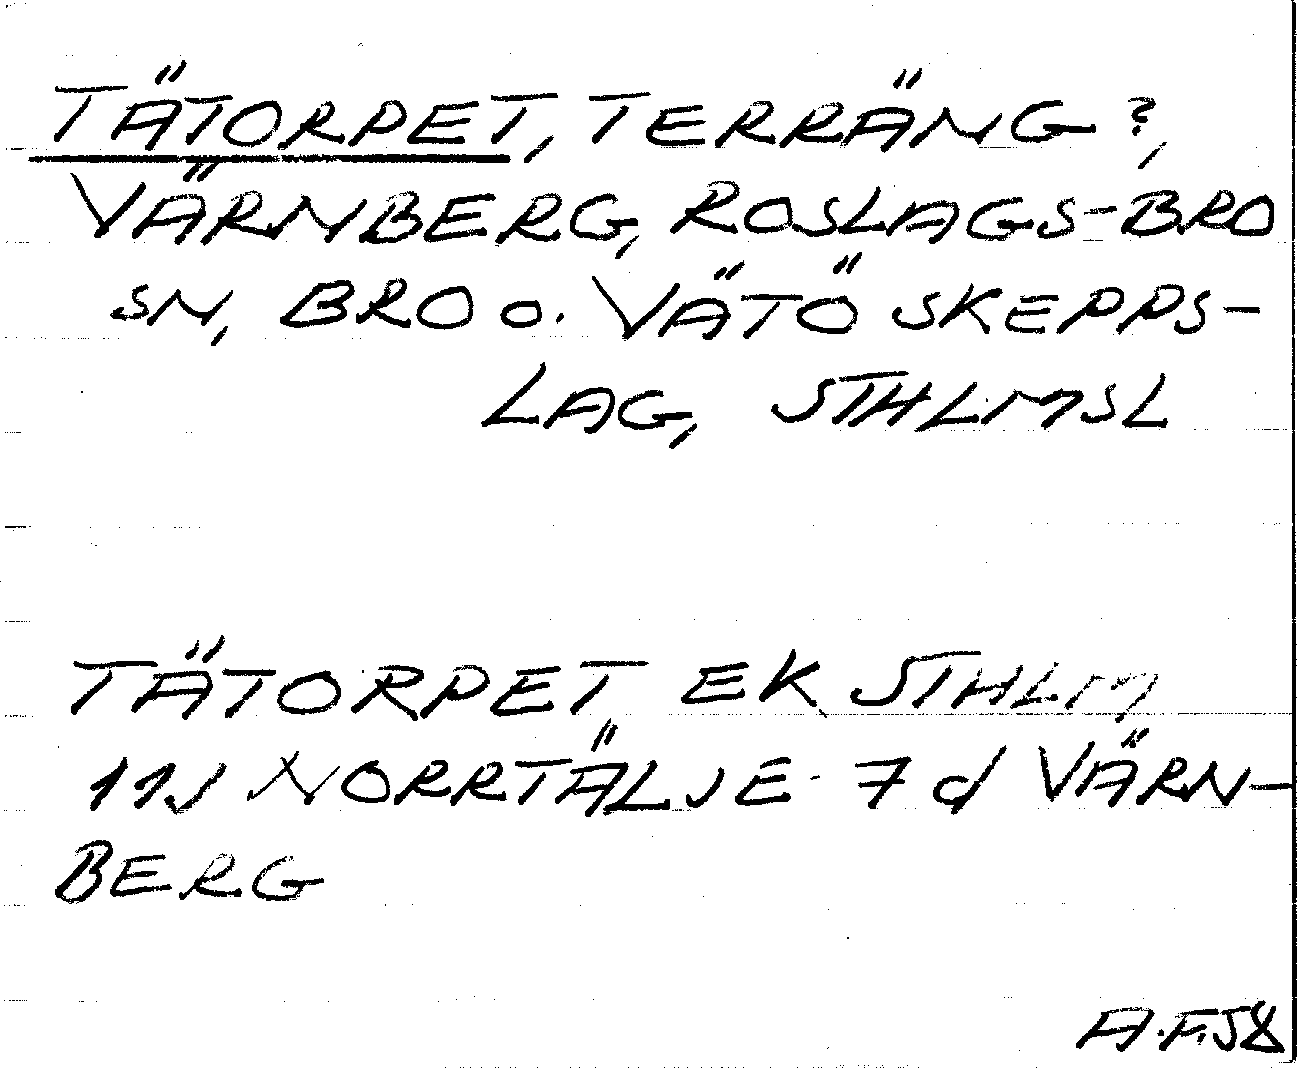 TÄTORPET, TERRÄNG?,
VÄRNBERG, ROSLAGS-BRO
SN, BRO O. VÄTÖ SKEPPS-
LAG, STHLMSL
TÄTORPET EK STHLM
11J NORRTÄLJE - 7 d VÄRN-
BERG
A.F.58